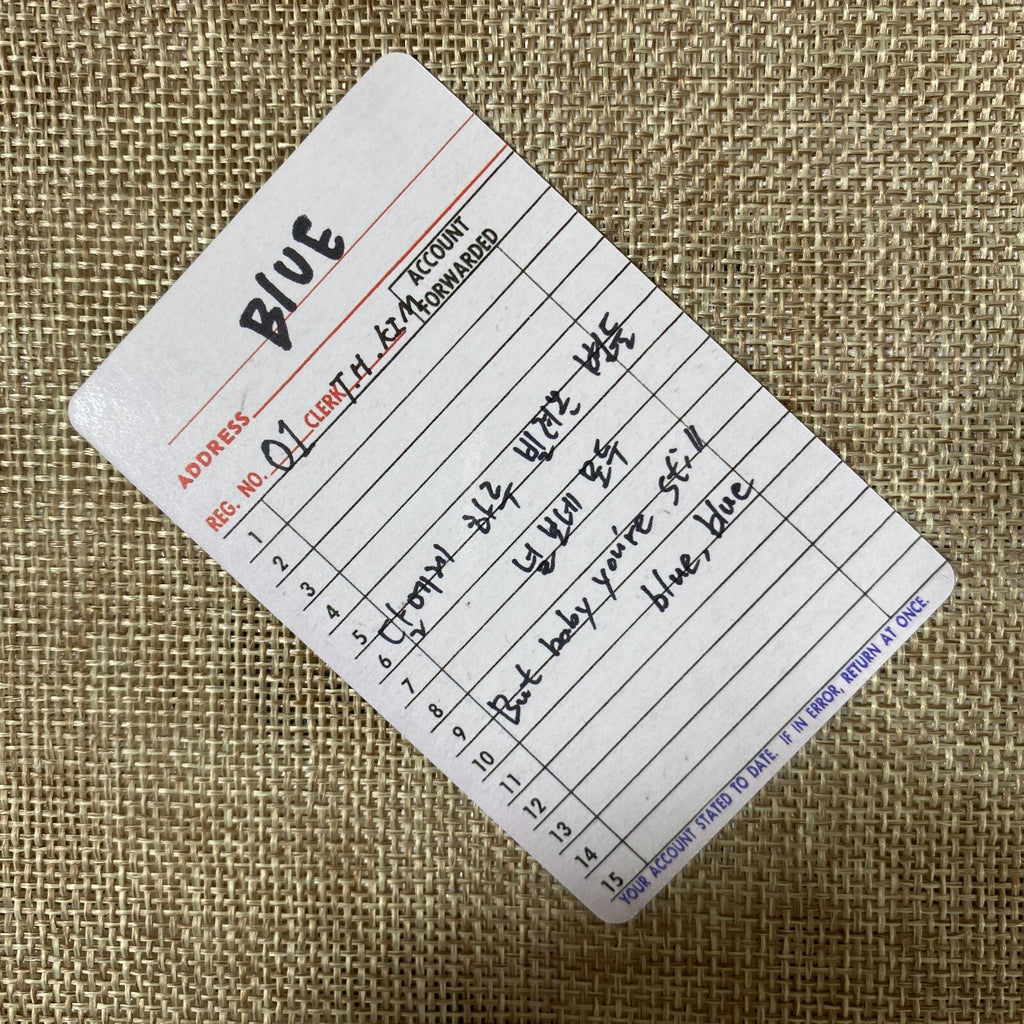 BlUE
ADDRESS
REG. NO. 01 CLERK TH.KIM ACCOUNT FORWARDED
1
2
3
4
5
6 달에게 하루 빌려간 별들
7
8 널 보네 모두
9
10 But baby you're still
11 blue, blue
12
13
14
15
YOUR ACCOUNT STATED TO DATE. IF IN ERROR, RETURN AT ONCE.